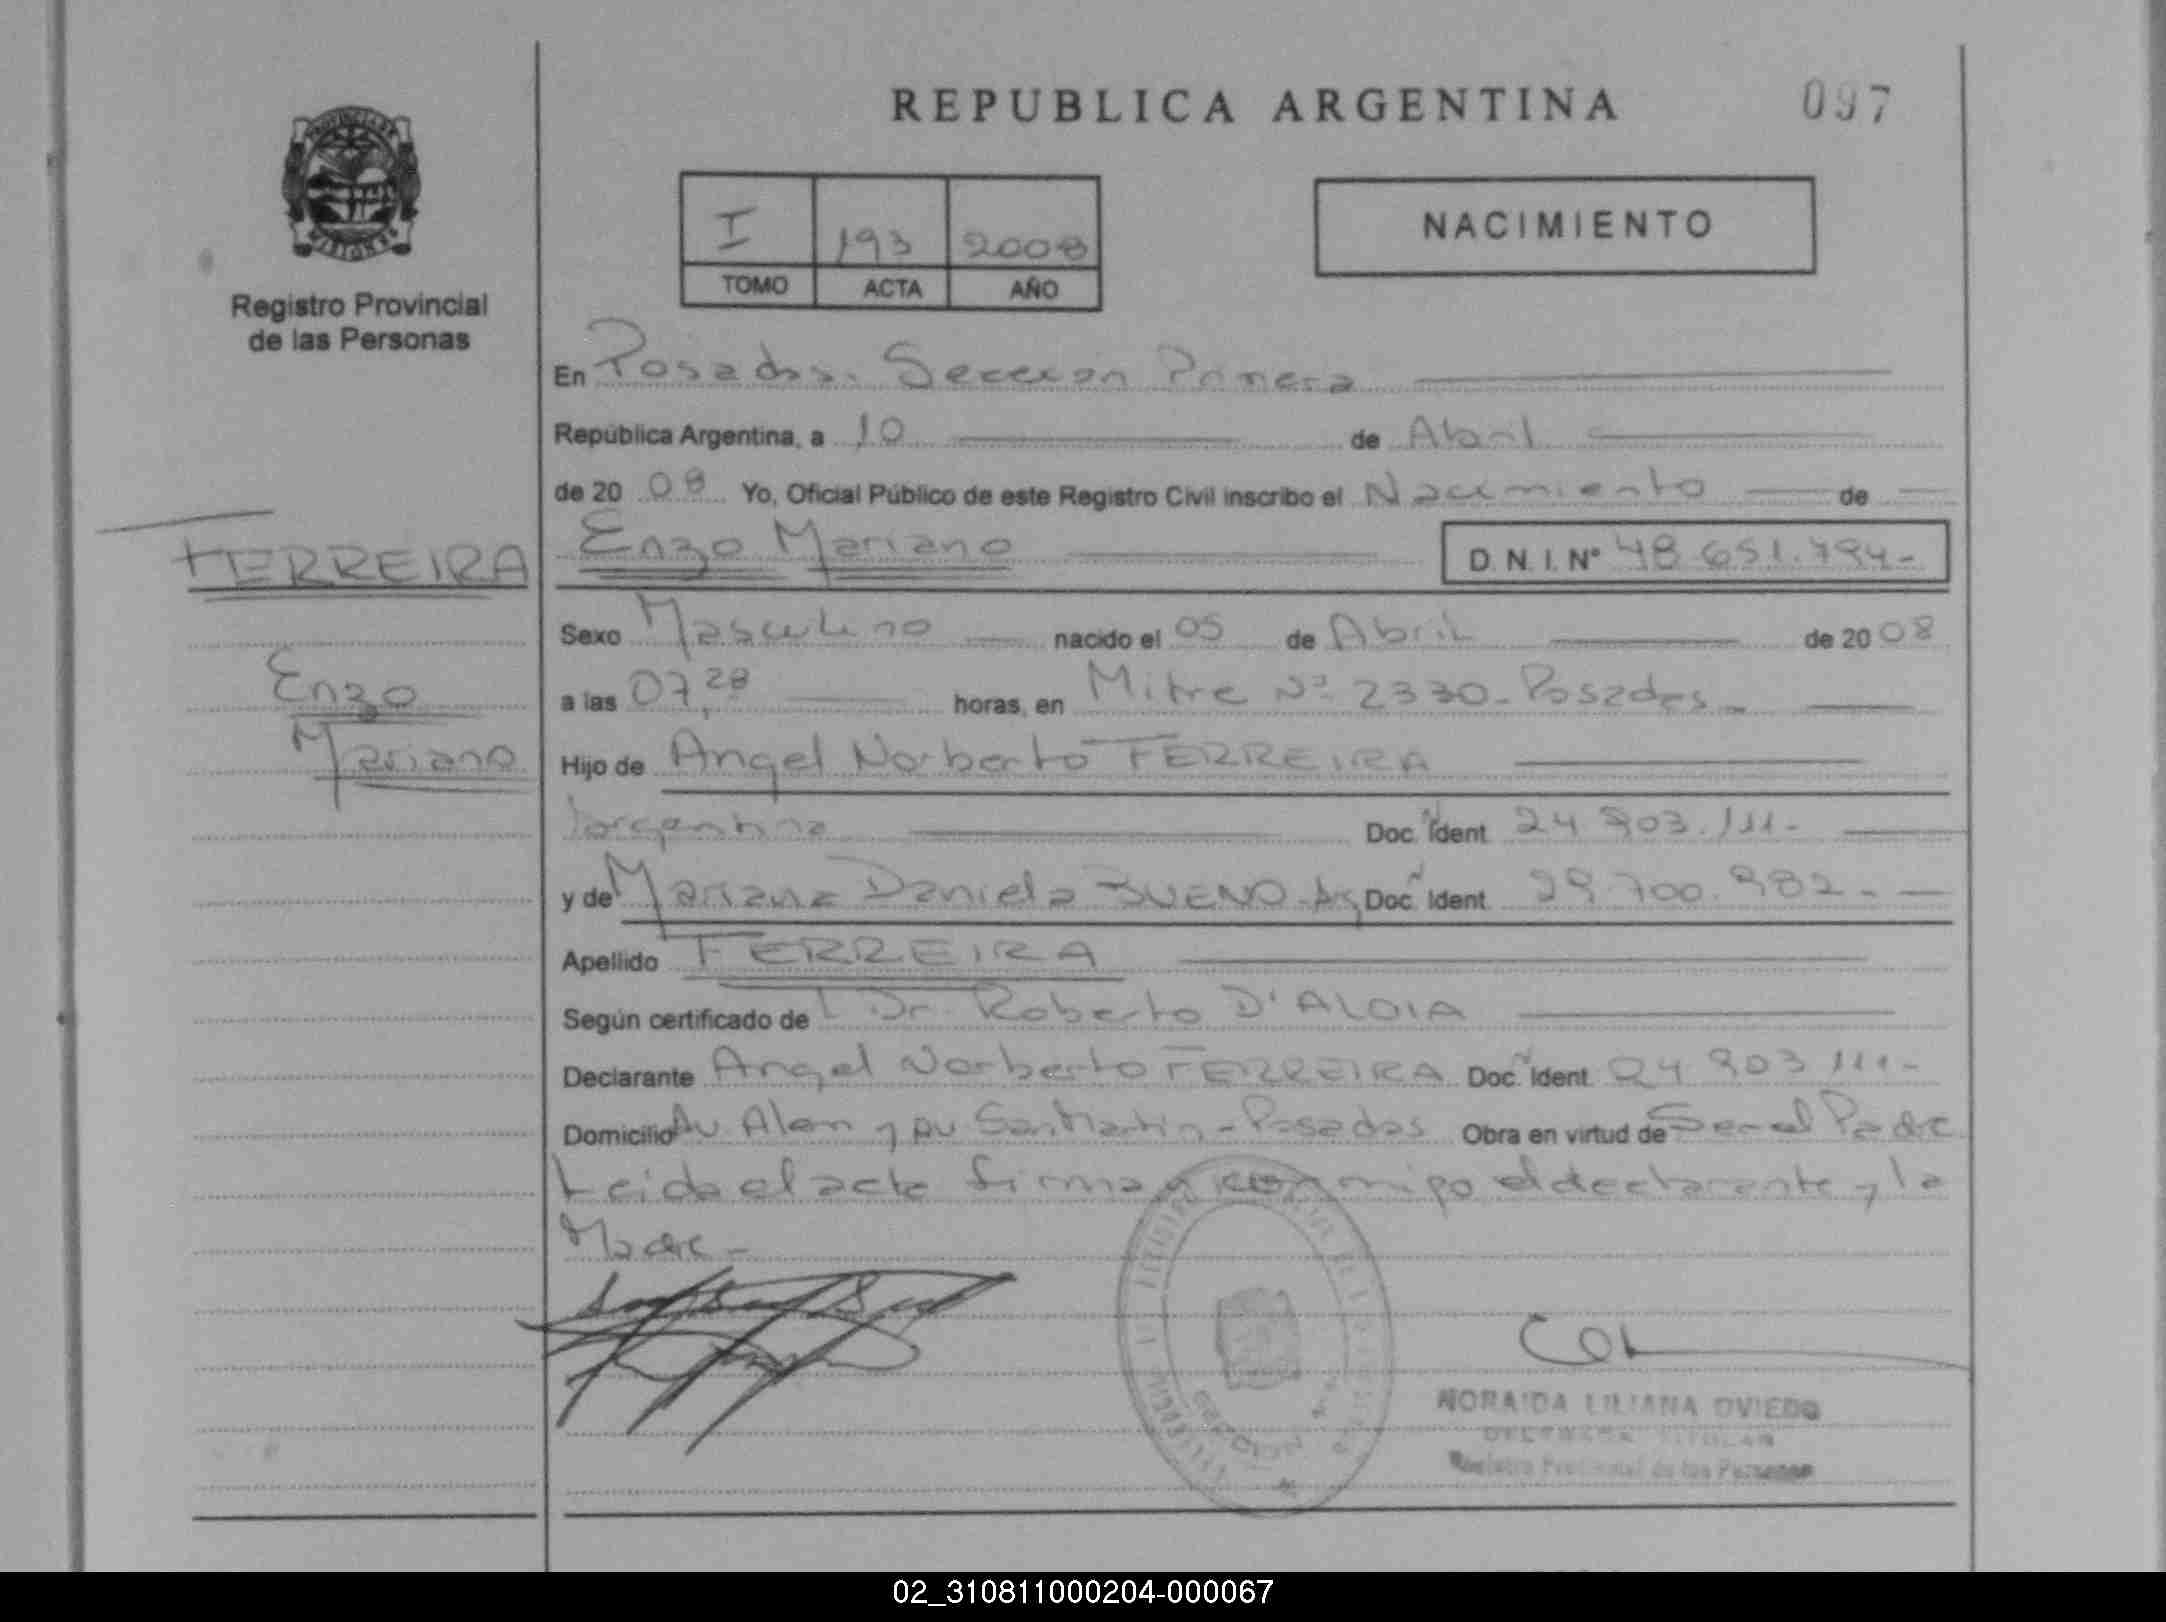 REPUBLICA ARGENTINA
097
PROVINCIA DE
MISIONES
Registro Provincial
de las Personas
I 193 2008
TOMO ACTA AÑO
NACIMIENTO
En Posadas. Seccion Primera
República Argentina, a 10 de Abril
de 20 08 Yo, Oficial Público de este Registro Civil inscribo el Nacimiento de
FERREIRA
Enzo
Mariano
Enzo Mariano D. N. I. Nº 48.651.794-
Sexo Masculino nacido el 05 de Abril de 20 08
a las 07,28 horas, en Mitre Nº 2330-Posadas-
Hijo de Angel Norberto FERREIRA
Argentina Doc. Ident. 24.903.111-
y de Mariana Daniela BUENO-Ag Doc. Ident. 29.700.982-
Apellido FERREIRA
Según certificado de Dr. Roberto D'ALOIA
Declarante Angel Norberto FERREIRA Doc. Ident. 24.903.111-
Domicilio Av. Alem y Av San Martin-Posadas Obra en virtud de Ser el Padre
Leida el acta firma conmigo el declarante y la
Madre-
NORAIDA LILIANA OVIEDO
DELEGADA TITULAR
Registro Provincial de las Personas
02_310811000204-000067